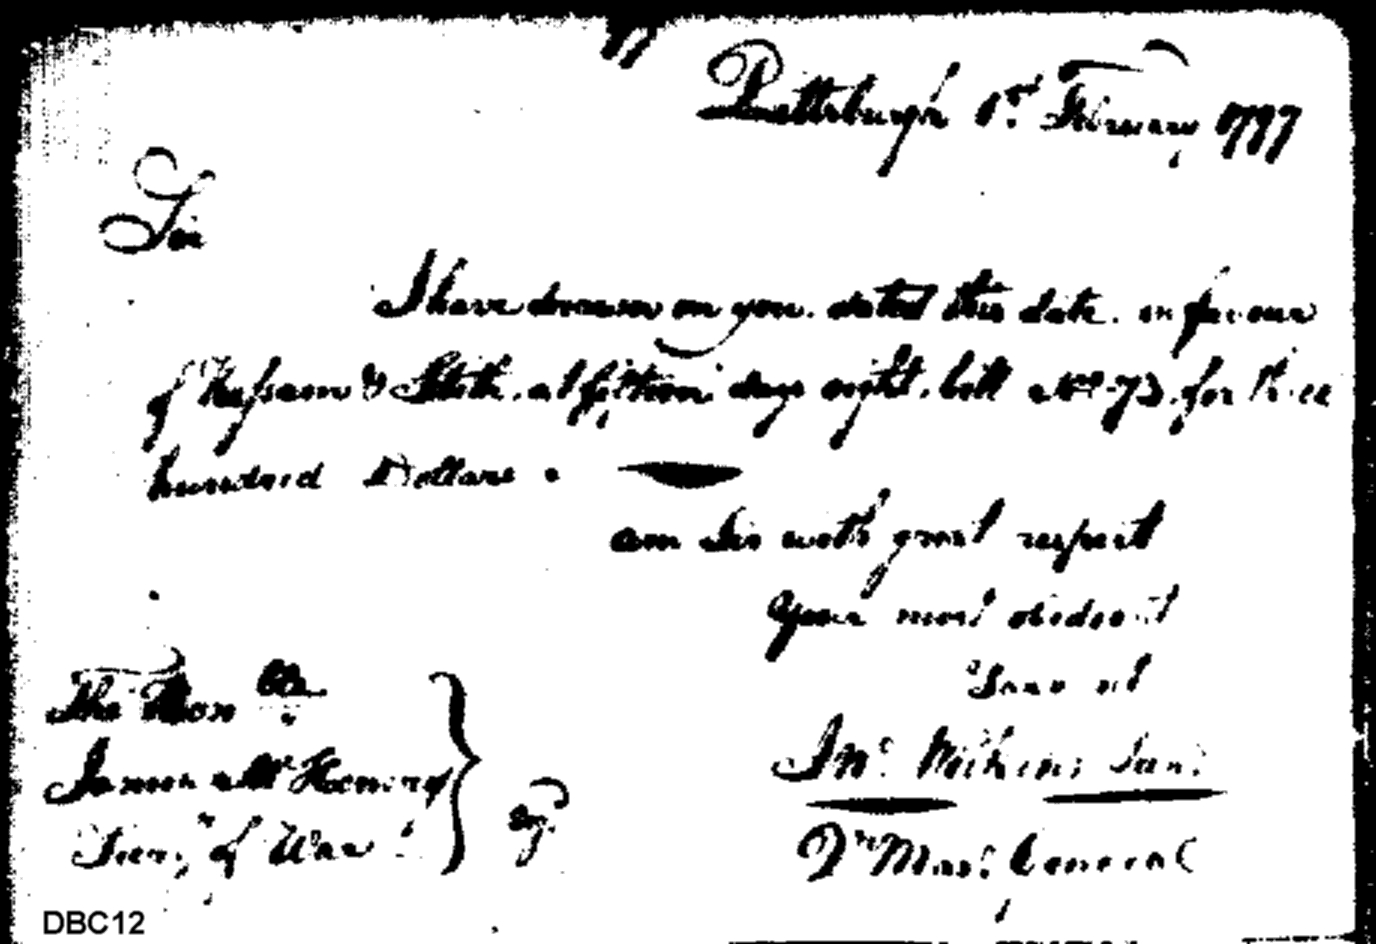 Pittsburgh 1st February 1797
Sir
I have drawn on you. dated this date. in favour
of & at fifteen days sight. bill No. 73. for three
hundred Dollars.
am Sir with great respect
Your most obedient
Servant
The Honble
Jno. Wilkins Junr.
James McHenry
Secy. of War
Esqr.
Qr Masr. General
DBC12